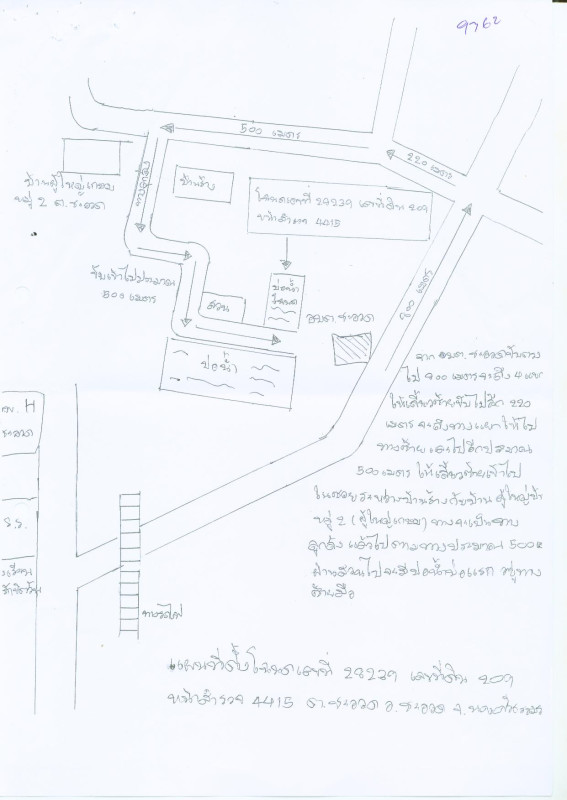 9762
500 เมตร
220 เมตร
บ้านผู้ใหญ่เกษม
หมู่ 2 ต.ชะอวด
ทางลูกรัง
บ้านร้าง
โฉนดเลขที่ 28239 เลขที่ดิน 209
หน้าสำรวจ 4415
ขับเข้าไปประมาณ
500 เมตร
สวน
บ่อน้ำ
โฉนด
อบต.ชะอวด
900 เมตร
บ่อน้ำ
จาก อบต.ชะอวดขับตาม
ไป 900 เมตรจะถึง 4 แยก
ให้เลี้ยวซ้ายขับไปอีก 220
เมตรจะถึงทางแยกให้ไป
ทางซ้าย และไปอีกประมาณ
500 เมตร ให้เลี้ยวซ้ายเข้าไป
ในซอยระหว่างบ้านร้างกับบ้านผู้ใหญ่บ้าน
หมู่ 2 (ผู้ใหญ่เกษม) ทางจะเป็นทาง
ลูกรัง แล้วไปตามทางประมาณ 500 ม
ผ่านสวนไปจะมีบ่อน้ำบ่อแรก อยู่ทาง
ซ้ายมือ
รพ. H
ชะอวด
ร.ร.
ทางรถไฟ
แผนที่ตั้งโฉนดเลขที่ 28239 เลขที่ดิน 209
หน้าสำรวจ 4415 ต.ชะอวด อ.ชะอวด จ.นครศรีธรรมราช